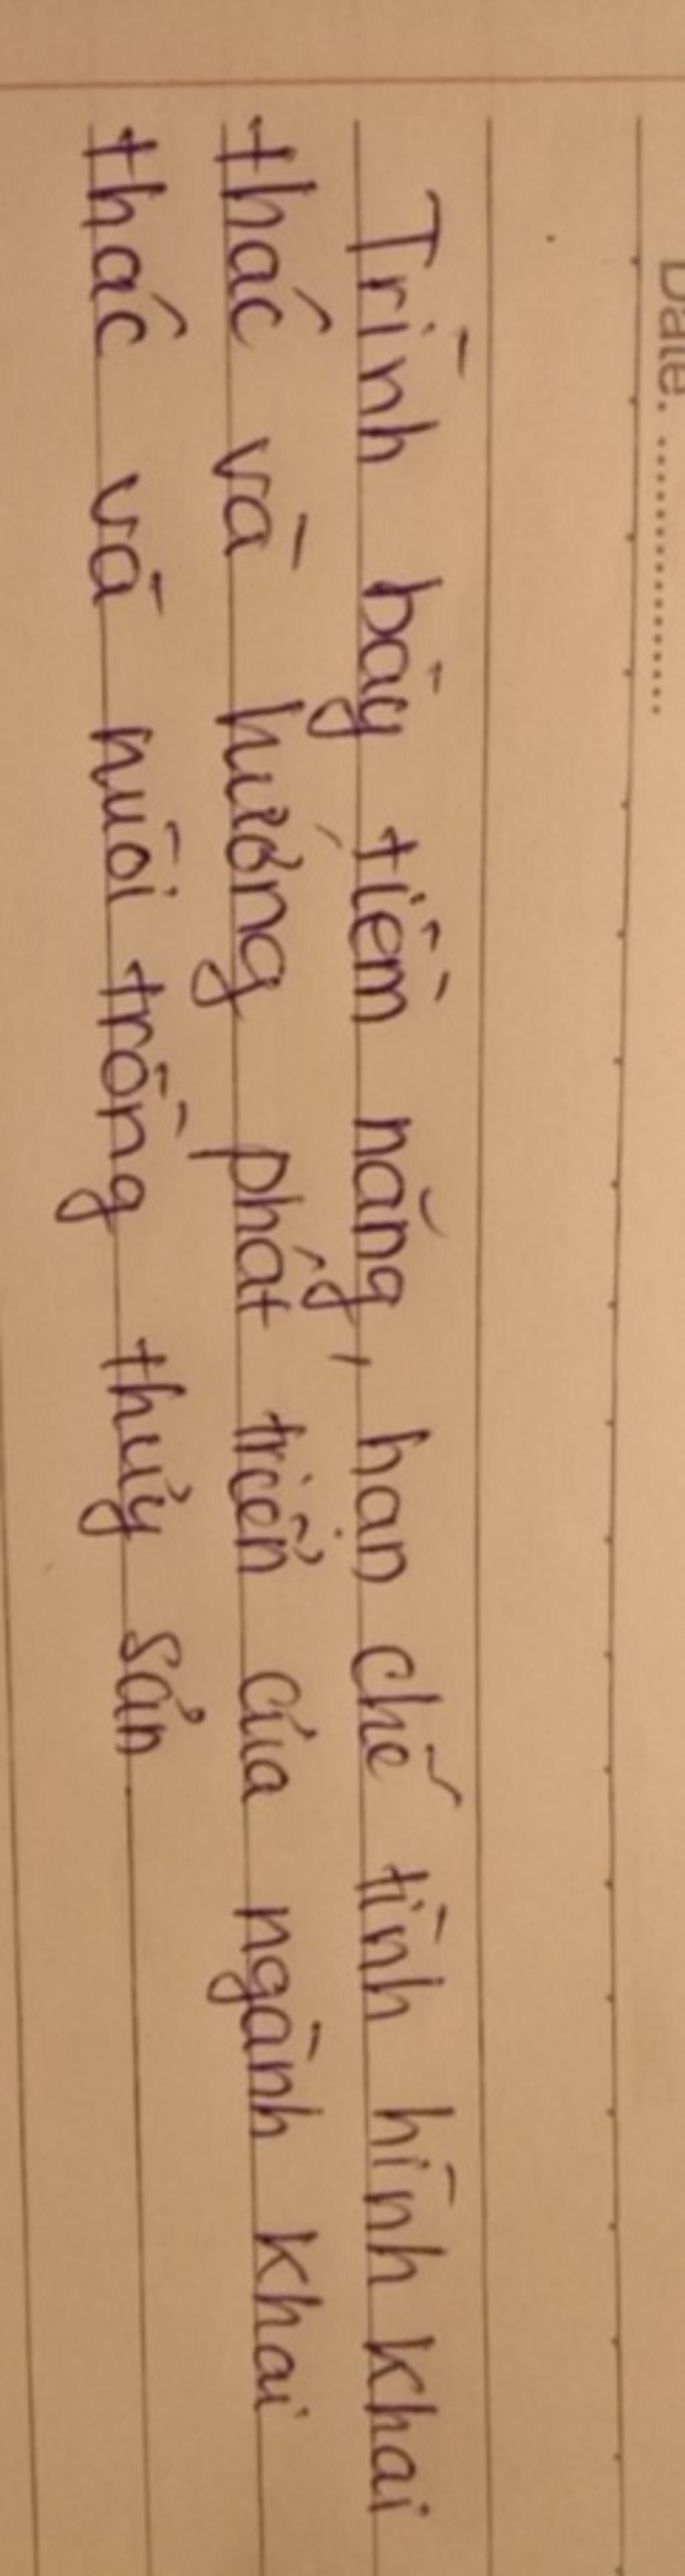 Date. ....................
Trình bày tiềm năng, hạn chế tình hình khai
thác và hướng phát triển của ngành khai
thác và nuôi trồng thuỷ sản.